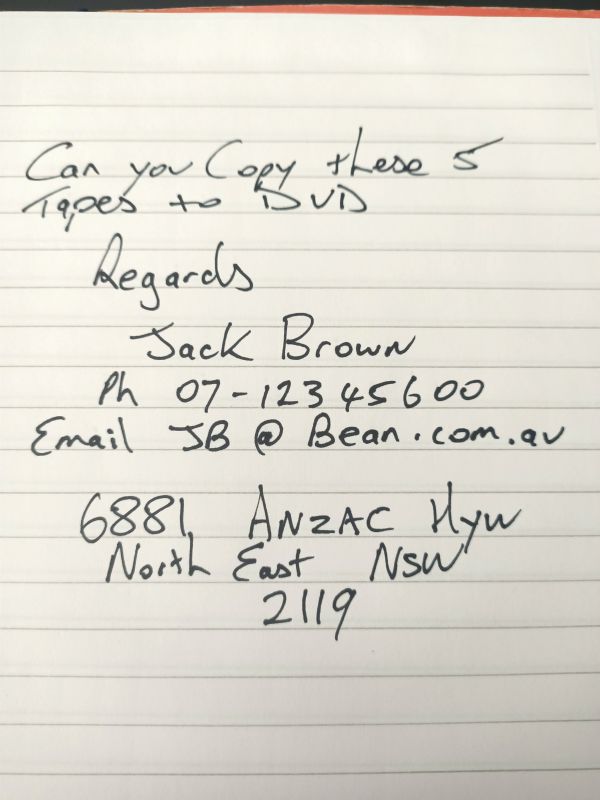 Can you Copy these 5
Tapes to DVD
Regards
Jack Brown
Ph 07-12345600
Email JB @ Bean.com.au
6881 ANZAC Hyw
North East NSW
2119